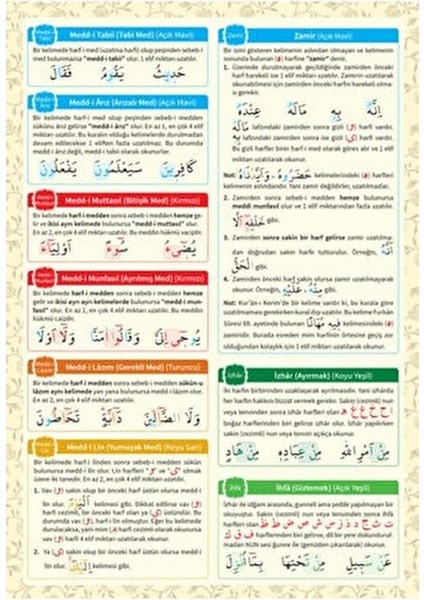 Medd-i Tabii
Medd-i Tabii (Tabi Med) (Açık Mavi)
Bir kelimede harf-i med (uzatma harfi) olup peşinden sebeb-i
med bulunmazsa "medd-i tabii" olur. 1 elif miktarı uzatılır.
حَدِيثُ يَقُومُ فَقَالَ
Medd-i Ârız
Medd-i Ârız (Arızalı Med) (Açık Mavi)
Bir kelimede harf-i med olup peşinden sebeb-i medden
sükûnu ârız gelirse "medd-i ârız" olur. En az 1, en çok 4 elif
miktarı uzatılır. Bu kuralın olduğu kelimelerde durulmadan
devam edilecekse 1 eliften fazla uzatılmaz. Bu durumda
medd-i ârız değil, medd-i tabii olarak okunurlar.
كَافِرِينَ سَيَعْلَمُونَ يَفْعَلُونَ
Medd-i Muttasıl
Medd-i Muttasıl (Bitişik Med) (Kırmızı)
Bir kelimede harf-i medden sonra sebeb-i medden hemze ge-
lir ve ikisi aynı kelimede bulunursa "medd-i muttasıl" olur.
En az 2, en çok 4 elif miktarı uzatılır. Bu meddin hükmü vaciptir.
يُضِيءُ سُوءُ اَوْلِيَاءَ
Medd-i Munfasıl
Medd-i Munfasıl (Ayrılmış Med) (Kırmızı)
Bir kelimede harf-i medden sonra sebeb-i medden hemze
gelir ve ikisi ayrı ayrı kelimelerde bulunursa "medd-i mun-
fasıl" olur. En az 2, en çok 4 elif miktarı uzatılır. Bu meddin
hükmü caizdir.
يُرْجَى اِنَّ وَقَالُوا اٰمَنَّا وَلَا اَوْلَا
Medd-i Lâzım
Medd-i Lâzım (Gerekli Med) (Turuncu)
Bir kelimede harf-i medden sonra sebeb-i medden sükûn-u
lâzım aynı kelimede yan yana bulunursa medd-i lâzım olur.
En az 2, en çok 4 elif miktarı uzatılır.
وَلَا الضَّالِّينَ دَابَّةٍ تَحَاضُّونَ
Medd-i Lîn
Medd-i Lîn (Yumuşak Med) (Koyu Sarı)
Bir kelimede harf-i linden sonra sebeb-i medden sükûn
bulunursa medd-i lin olur. Lin harfleri
üzere iki tanedir. En az 2, en çok 4 elif miktarı uzatılır.
1. Vav (و) sakin olup bir önceki harf üstün olursa medd-i
lin olur. kelimesi gibi. Dikkat edilirse vav (و)
harfi cezimli, bir önceki harf olan ya (ي) üstündür. Bu
durumda vav (و), harf-i lin olmuştur. Eğer bu kelimede
durulacaksa, yani mim (م) harfi cezimli olarak okunursa
vav (و) harfi 4 elif miktarı uzatılarak okunur.
2. Ya (ي) sakin olup bir önceki harf üstün olursa medd-i
lin olur. kelimesi gibi.
Zamir
Zamir (Açık Mavi)
Bir ismi gösteren kelimenin aslından olmayan ve kelimenin
sonunda bulunan (ه) harfine "zamir" denir.
1. Üzerinde durulmayarak geçildiğinde zamirden önceki
harf harekeli ise 1 elif miktarı uzatılır. Zamirin uzatılarak
okunabilmesi için zamirden önceki harfin harekeli olma-
sı gerekir.
اِنَّهُ بِهِ مَالَهُ عِنْدَهُ
مَالَهُ lafzındaki zamirden sonra gizli (و) harfi vardır.
بِهِ lafzındaki zamirden sonra gizli (ي) harfi vardır.
Bu gizli harfler birer harf-i med olarak görev alır ve 1 elif
miktarı uzatılarak okunur.
Not: kelimelerindeki (ه) harfleri
kelimenin aslındandır. Yani zamir değildirler, uzatılmazlar.
2. Zamirden sonra sebeb-i medden hemze bulunursa
meddi munfasıl olur ve 1 elif miktarından fazla uzatılır.
gibi.
3. Zamirden sonra sakin bir harf gelirse zamir uzatılma-
dan doğrudan sakin harfe tutturulur. Örneğin,
gibi.
4. Zamirden önceki harf sakin olursa zamir uzatılmayarak
okunur. Örneğin, مِنْهُ، عَلَيْهِ gibi.
Not: Kur'ân-ı Kerim'de bir kelime vardır ki, bu kurala göre
uzatılmaması gerekirken kural dışı uzatılır. Bu kelime Furkân
Sûresi 69. ayetinde bulunan فِيهِ مُهَانًا kelimesindeki (ه)
zamiridir. Burada evreden mim harfinin örtüşmesi geçiş zor
olduğundan kolaylık için 1 elif miktarı uzatılarak okunur.
İzhâr
İzhâr (Ayırmak) (Koyu Yeşil)
İki harfin birbirinden uzaklaşarak ayrılmasıdır. Yani izhârda
her harfin hakkını bizzat vermek gerekir. Sakin (cezimli) nun
veya tenvinden sonra izhâr harfleri olan
boğaz harflerinden biri gelirse izhâr olur. İzhâr yapılırken
sakin (cezimli) nun veya tenvin açıkça okunur.
مِنْ اَمْرِ اللهِ مِنْ عِبَادِهِ مِنْ هَادٍ
İhfâ
İhfâ (Gizlemek) (Açık Yeşil)
İzhâr ile idğam arasında, gunneli ama şedde yapılmayan bir
okuyuştur. Sakin (cezimli) nun veya tenvinden sonra ihfâ
harfleri olan ت ث ج د ذ ز س ش ص ض ط ظ
ف ق ك harflerinden biri gelirse, dil bir yere dokundurul-
madan NUN sesi gunne ile (genizden çıkarılarak) okunur.
عَنْ سَبِيلِ مِنْ تَحْتِهَا بِمَا اُنْزِلَ